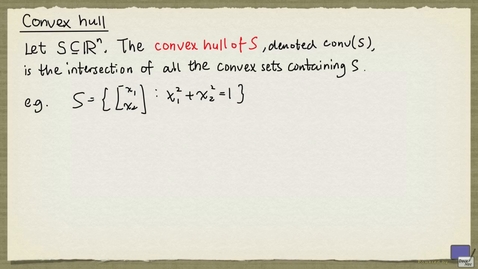 Convex hull
Let S⊆ℝⁿ. The convex hull of S, denoted conv(S),
is the intersection of all the convex sets containing S.
e.g. S = { [x₁ x₂] : x₁² + x₂² = 1 }